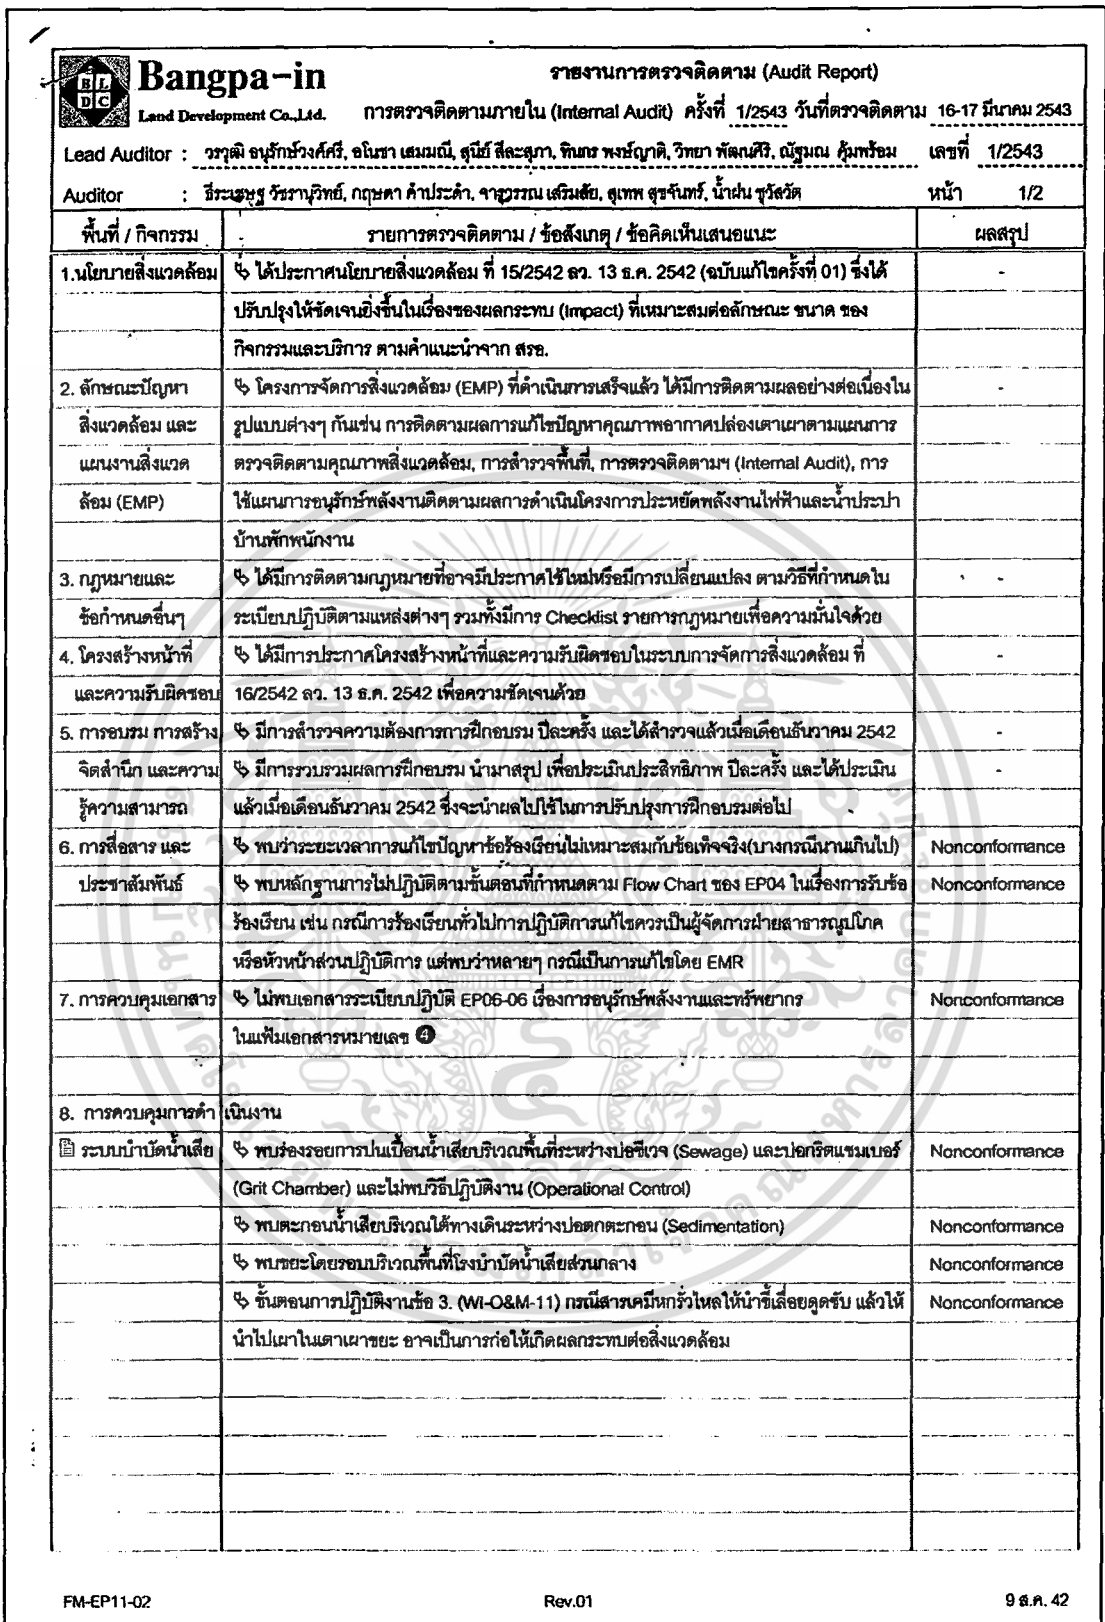 Bangpa-in
B L
D C
Land Development Co.,Ltd.
รายงานการตรวจติดตาม (Audit Report)
การตรวจติดตามภายใน (Internal Audit) ครั้งที่ 1/2543 วันที่ตรวจติดตาม 16-17 มีนาคม 2543
Lead Auditor : วรวุฒิ อนุรักษ์วงศ์ศรี, อโนชา เสมมณี, สุนีย์ ลีละสุภา, ทินกร พงษ์ญาติ, วิทยา พัฒนศิริ, ณัฐมณ คุ้มพร้อม เลขที่ 1/2543
Auditor : ธีระเชษฐ วัชรานุวิทย์, กฤษดา คำประดำ, จารุวรรณ เสริมสัย, สุเทพ สุขจันทร์, น้ำฝน ชูวัสวัต หน้า 1/2
พื้นที่ / กิจกรรม รายการตรวจติดตาม / ข้อสังเกตุ / ข้อคิดเห็นเสนอแนะ ผลสรุป
1.นโยบายสิ่งแวดล้อม ได้ประกาศนโยบายสิ่งแวดล้อม ที่ 15/2542 ลว. 13 ธ.ค. 2542 (ฉบับแก้ไขครั้งที่ 01) ซึ่งได้ -
ปรับปรุงให้ชัดเจนยิ่งขึ้นในเรื่องของผลกระทบ (Impact) ที่เหมาะสมต่อลักษณะ ขนาด ของ
กิจกรรมและบริการ ตามคำแนะนำจาก สรอ.
2. ลักษณะปัญหา โครงการจัดการสิ่งแวดล้อม (EMP) ที่ดำเนินการเสร็จแล้ว ได้มีการติดตามผลอย่างต่อเนื่องใน -
สิ่งแวดล้อม และ รูปแบบต่างๆ กันเช่น การติดตามผลการแก้ไขปัญหาคุณภาพอากาศปล่องเตาเผาตามแผนการ
แผนงานสิ่งแวด ตรวจติดตามคุณภาพสิ่งแวดล้อม, การสำรวจพื้นที่, การตรวจติดตามฯ (Internal Audit), การ
ล้อม (EMP) ใช้แผนการอนุรักษ์พลังงานติดตามผลการดำเนินโครงการประหยัดพลังงานไฟฟ้าและน้ำประปา
บ้านพักพนักงาน
3. กฎหมายและ ได้มีการติดตามกฎหมายที่อาจมีประกาศใช้ใหม่หรือมีการเปลี่ยนแปลง ตามวิธีที่กำหนดใน -
ข้อกำหนดอื่นๆ ระเบียบปฏิบัติตามแหล่งต่างๆ รวมทั้งมีการ Checklist รายการกฎหมายเพื่อความมั่นใจด้วย
4. โครงสร้างหน้าที่ ได้มีการประกาศโครงสร้างหน้าที่และความรับผิดชอบในระบบการจัดการสิ่งแวดล้อม ที่ -
และความรับผิดชอบ 16/2542 ลว. 13 ธ.ค. 2542 เพื่อความชัดเจนด้วย
5. การอบรม การสร้าง มีการสำรวจความต้องการการฝึกอบรม ปีละครั้ง และได้สำรวจแล้วเมื่อเดือนธันวาคม 2542 -
จิตสำนึก และความ มีการรวบรวมผลการฝึกอบรม นำมาสรุป เพื่อประเมินประสิทธิภาพ ปีละครั้ง และได้ประเมิน -
รู้ความสามารถ แล้วเมื่อเดือนธันวาคม 2542 ซึ่งจะนำผลไปใช้ในการปรับปรุงการฝึกอบรมต่อไป
6. การสื่อสาร และ พบว่าระยะเวลาการแก้ไขปัญหาข้อร้องเรียนไม่เหมาะสมกับข้อเท็จจริง(บางกรณีนานเกินไป) Nonconformance
ประชาสัมพันธ์ พบหลักฐานการไม่ปฏิบัติตามขั้นตอนที่กำหนดตาม Flow Chart ของ EP04 ในเรื่องการรับข้อ Nonconformance
ร้องเรียน เช่น กรณีการร้องเรียนทั่วไปการปฏิบัติการแก้ไขควรเป็นผู้จัดการฝ่ายสาธารณูปโภค
หรือหัวหน้าส่วนปฏิบัติการ แต่พบว่าหลายๆ กรณีเป็นการแก้ไขโดย EMR
7. การควบคุมเอกสาร ไม่พบเอกสารระเบียบปฏิบัติ EP06-06 เรื่องการอนุรักษ์พลังงานและทรัพยากร Nonconformance
ในแฟ้มเอกสารหมายเลข ❹
8. การควบคุมการดำเนินงาน
ระบบบำบัดน้ำเสีย พบร่องรอยการปนเปื้อนน้ำเสียบริเวณพื้นที่ระหว่างบ่อซีเวจ (Sewage) และบ่อกริตแชมเบอร์ Nonconformance
(Grit Chamber) และไม่พบวิธีปฏิบัติงาน (Operational Control)
พบตะกอนน้ำเสียบริเวณใต้ทางเดินระหว่างบ่อตกตะกอน (Sedimentation) Nonconformance
พบขยะโดยรอบบริเวณพื้นที่โรงบำบัดน้ำเสียส่วนกลาง Nonconformance
ขั้นตอนการปฏิบัติงานข้อ 3. (WI-O&M-11) กรณีสารเคมีหกรั่วไหลให้นำขี้เลื่อยดูดซับ แล้วให้ Nonconformance
นำไปเผาในเตาเผาขยะ อาจเป็นการก่อให้เกิดผลกระทบต่อสิ่งแวดล้อม
FM-EP11-02 Rev.01 9 ส.ค. 42